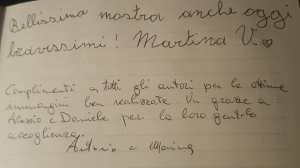 Bellissima mostra anche oggi
bravissimi! Martina V.
Complimenti a tutti gli autori per le ottime
immagini ben realizzate. Un grazie a
Alessio e Daniele per la loro gentile
accoglienza.
Antonio e